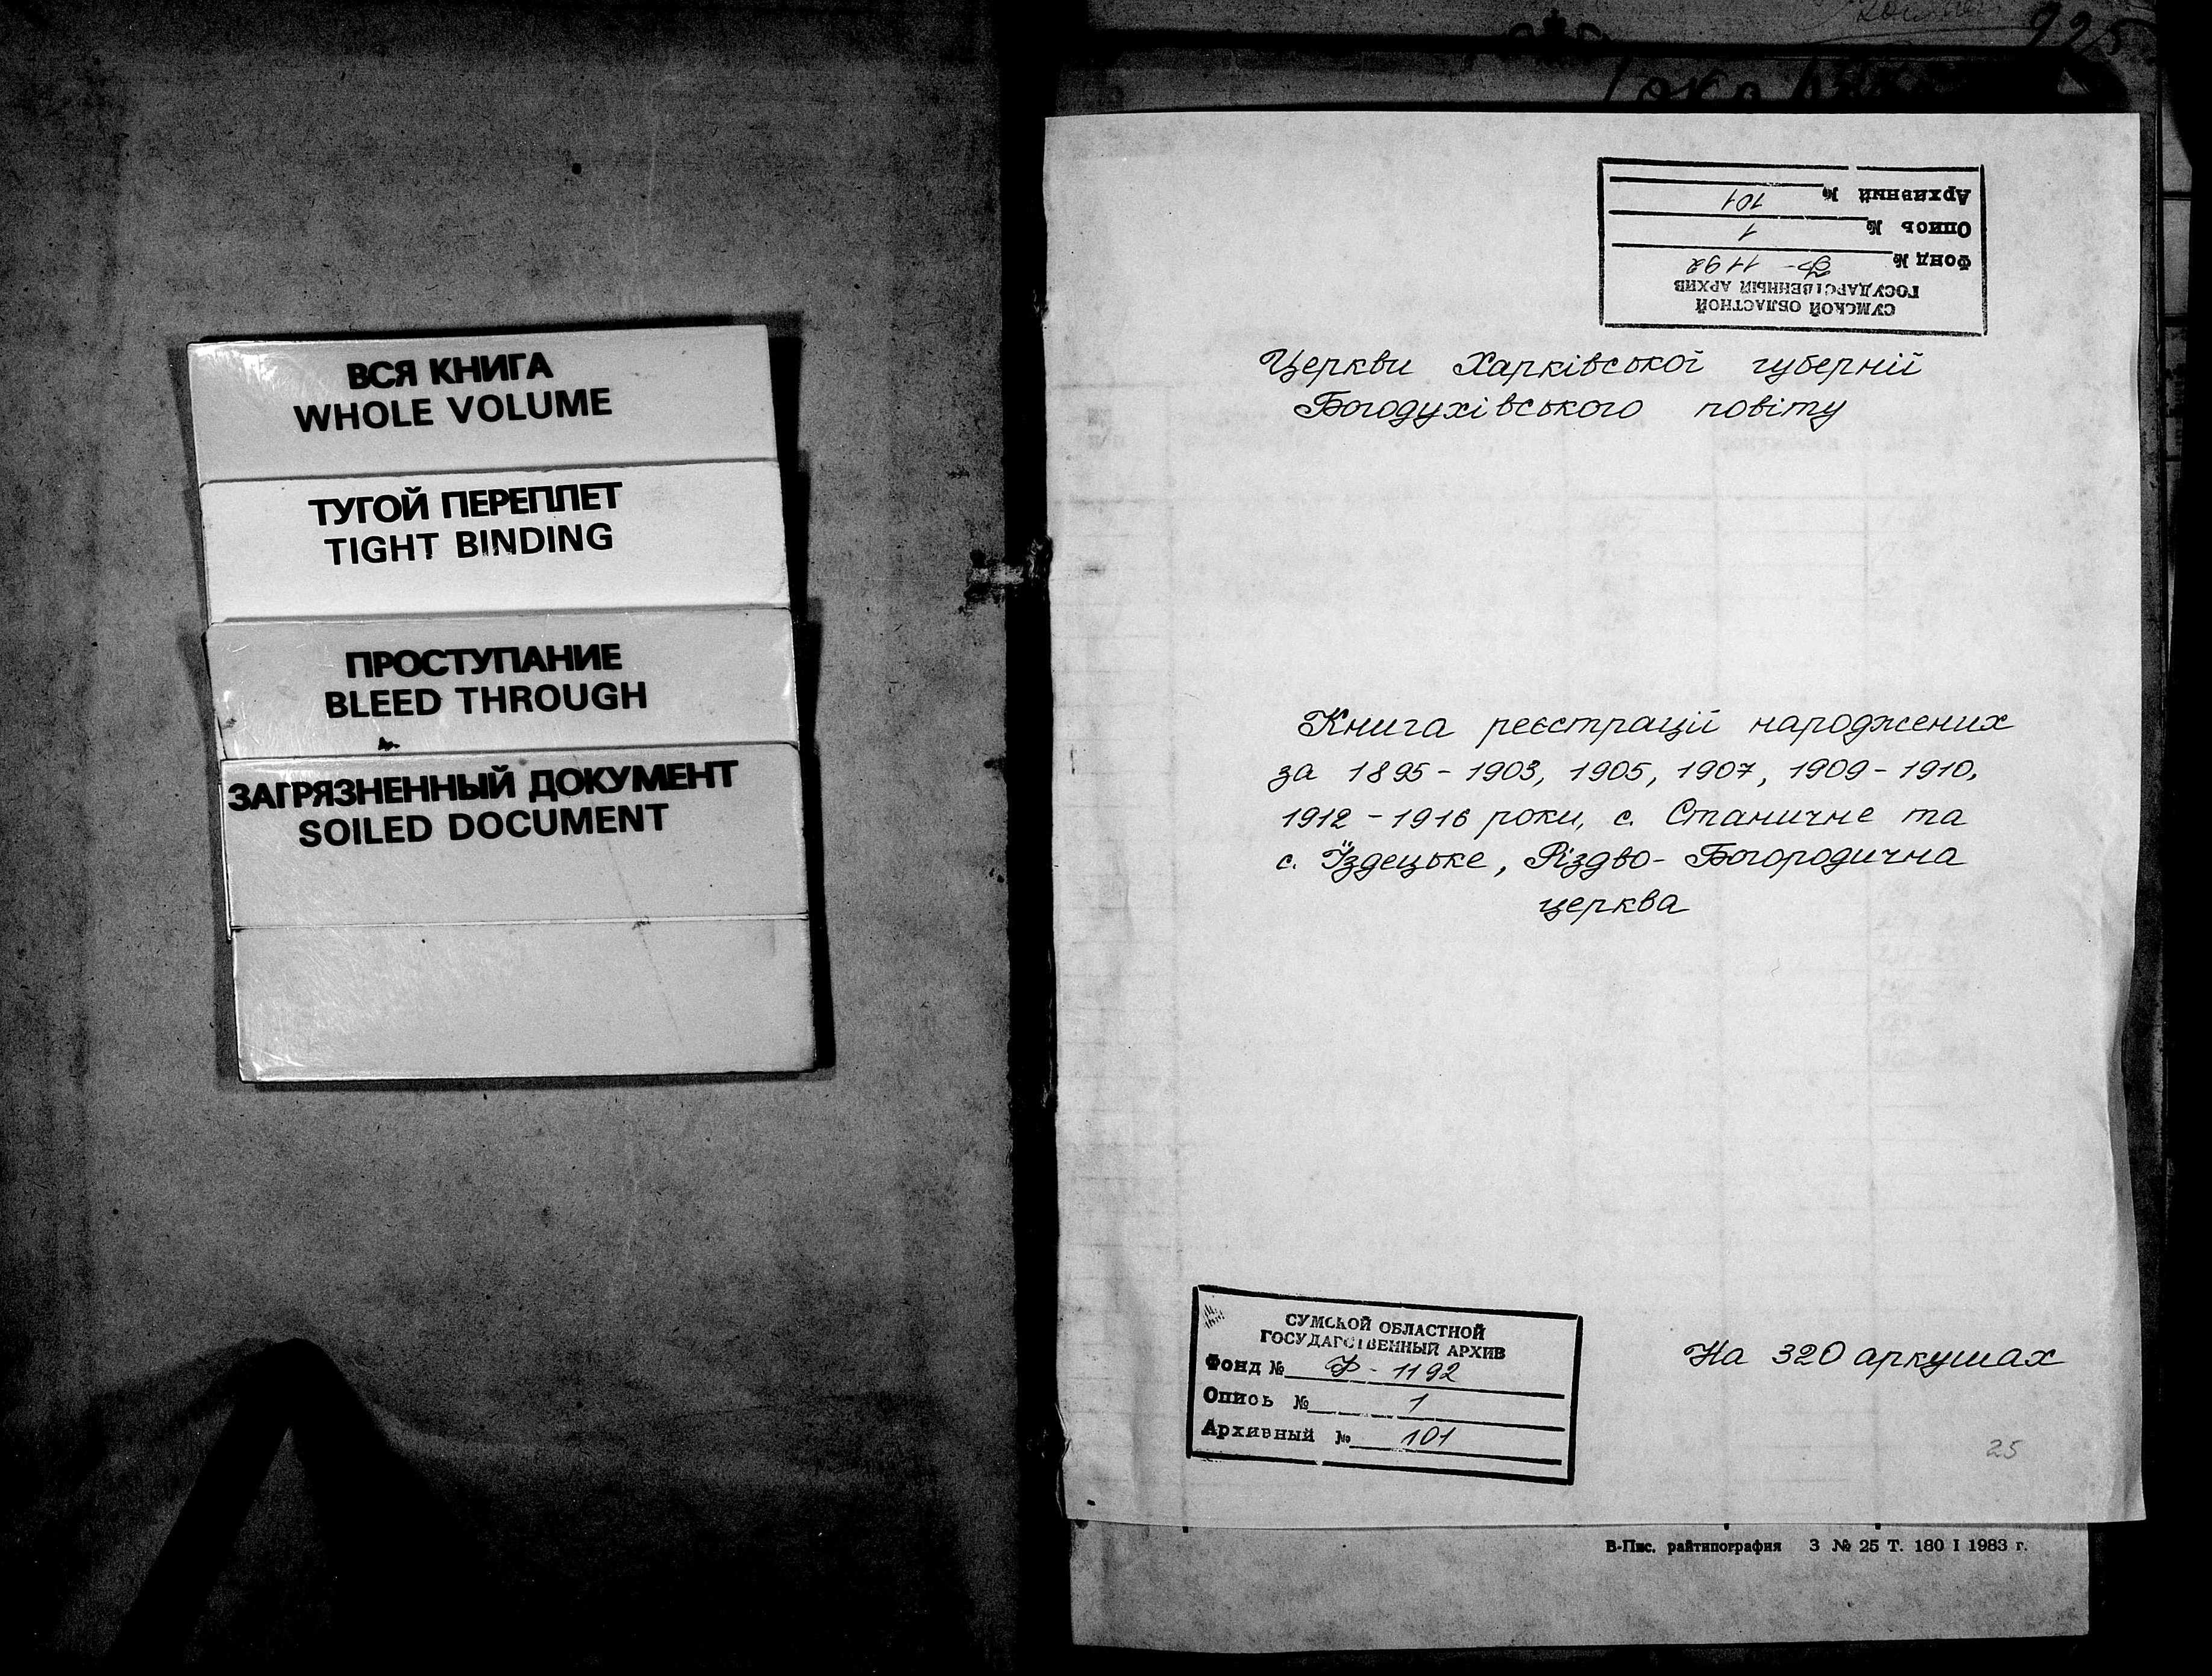 ВСЯ КНИГА
WHOLE VOLUME
ТУГОЙ ПЕРЕПЛЕТ
TIGHT BINDING
ПРОСТУПАНИЕ
BLEED THROUGH
ЗАГРЯЗНЕННЫЙ ДОКУМЕНТ
SOILED DOCUMENT
925
СУМСКОЙ ОБЛАСТНОЙ
ГОСУДАРСТВЕННЫЙ АРХИВ
Фонд № Ф - 1192
Опись № 1
Архивный № 101
Церкви Харківської губернії
Богодухівського повіту
Книга реєстрації народжених
за 1895 - 1903, 1905, 1907, 1909 - 1910,
1912 - 1916 роки, с. Станичне та
с. Їздецьке, Різдво - Богородична
церква
СУМСКОЙ ОБЛАСТНОЙ
ГОСУДАРСТВЕННЫЙ АРХИВ
Фонд № Ф - 1192
Опись № 1
Архивный № 101
На 320 аркушах
25
В-Пис. райтипография З № 25 Т. 180 I 1983 г.